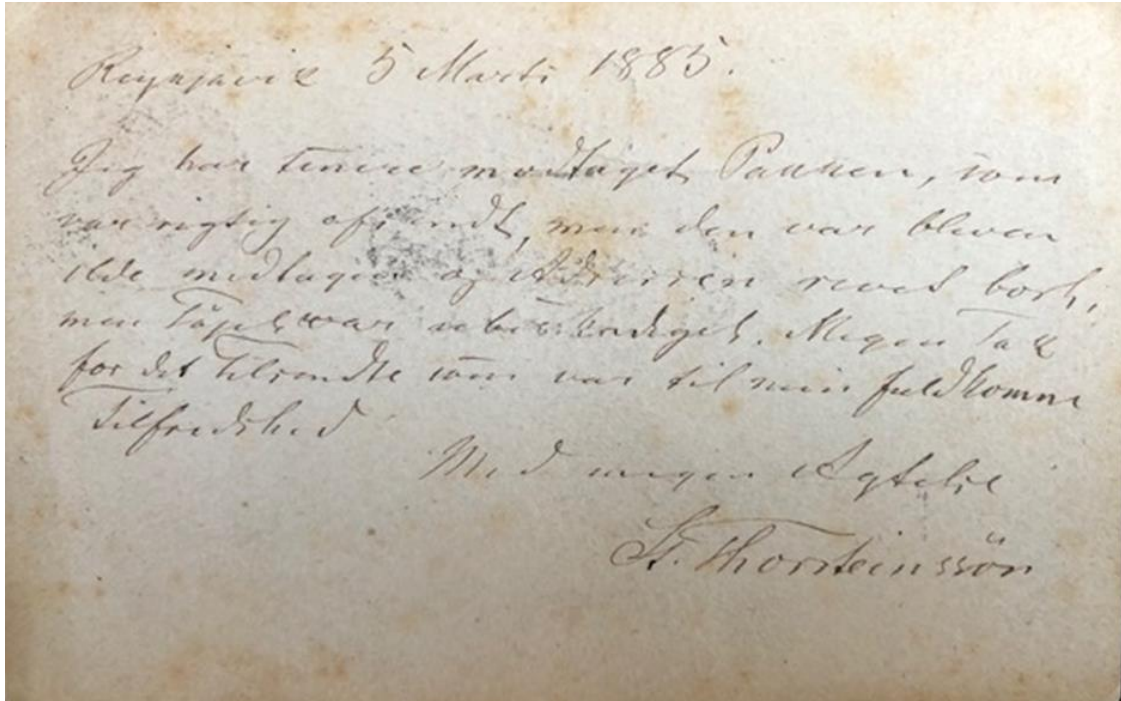 Reykjavik 5 Marts 1885.
Jeg har senere modtaget Pakken, som
var rigtig afsendt, men den var bleven
ilde medtagen og Adressen revet bort,
men Töjet var ubeskadiget. Megen Tak
for det Tilsendte som var til min fuldkomne
Tilfredshed
Med megen Agtelse
St. Thorsteinssön